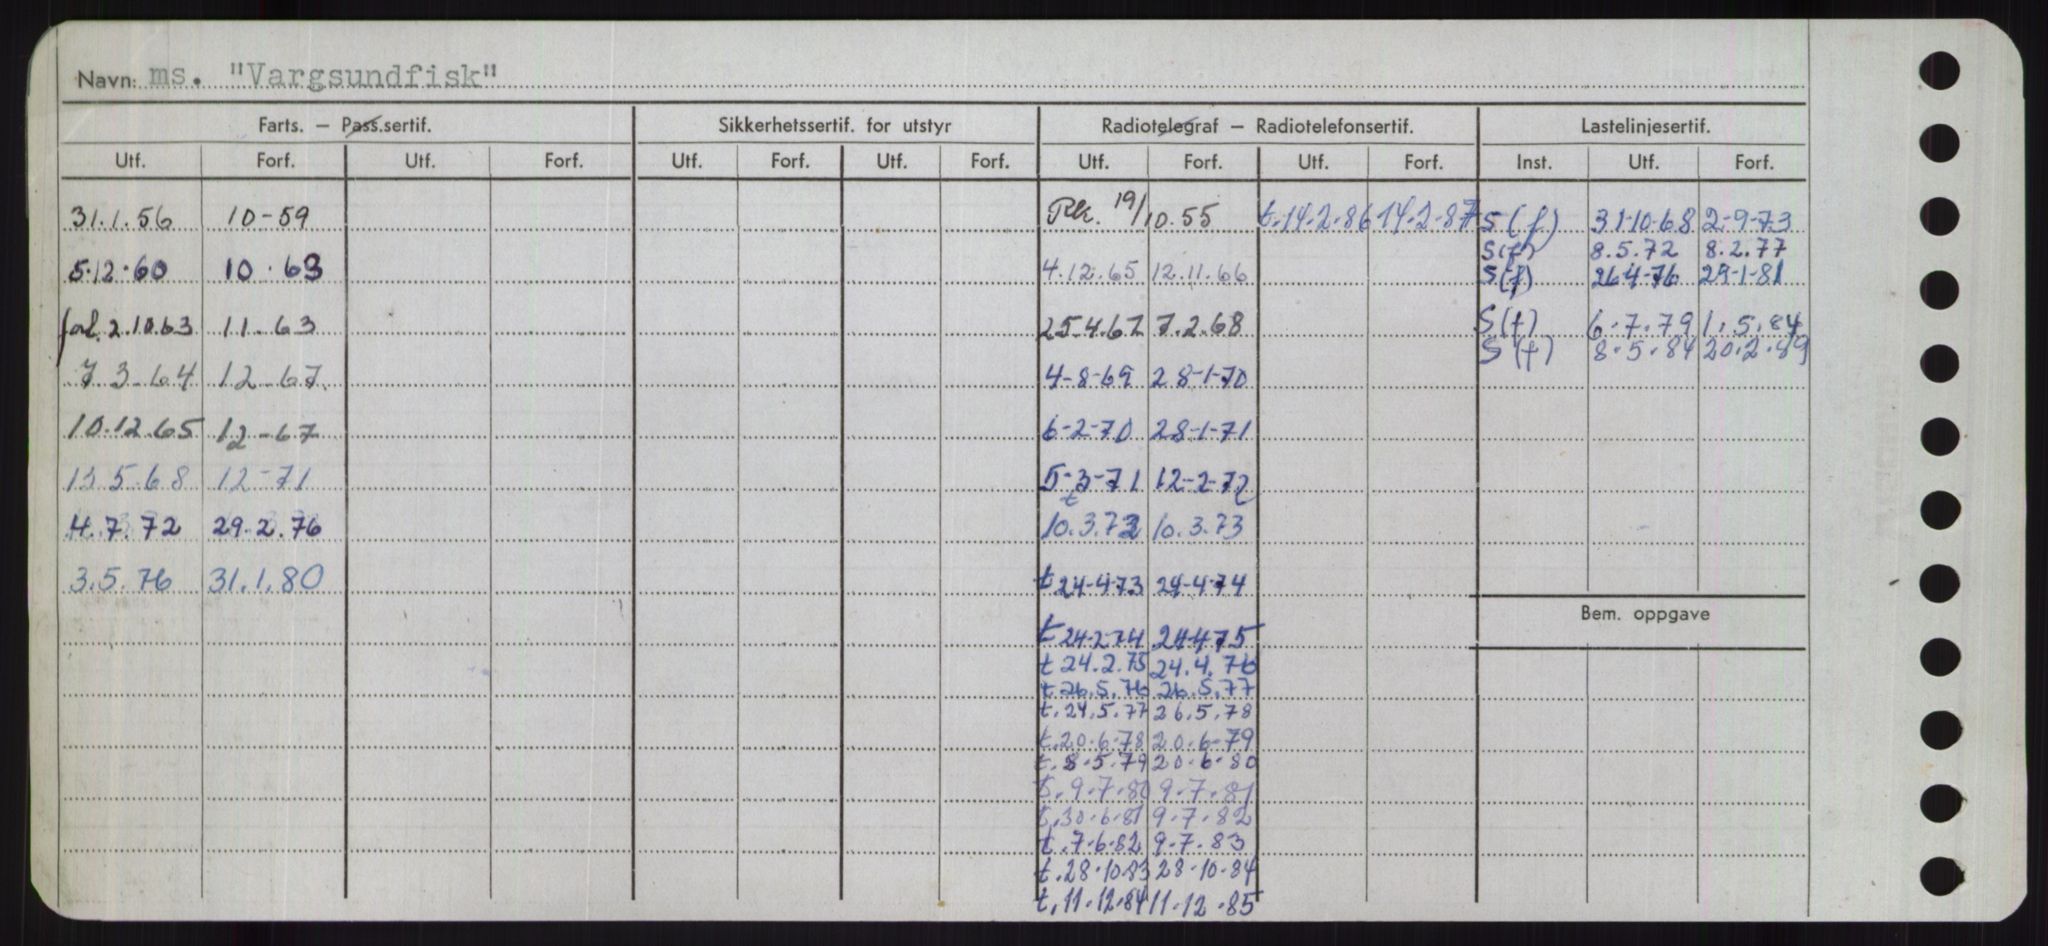 Navn: ms. "Vargsundfisk"
Farts. – Pass.sertif. Sikkerhetssertif. for utstyr Radiotelegraf – Radiotelefonsertif. Lastelinjesertif.
Utf. Forf. Utf. Forf. Utf. Forf. Utf. Forf. Utf. Forf. Utf. Forf. Inst. Utf. Forf.
31.1.56 10-59 19/10.55 t.14.2.86 14.2.87 S(f) 31-10-68 2-9-73
S(f) 8.5.72 8.2.77
5.12.60 10.63 4.12.65 12.11.66 S(f) 26-4-76 29-1-81
forl. 2.10.63 11.63 25.4.67 7.2.68 S(f) 6.7.79 1.5.84
S(f) 8.5.84 20.2.89
7 3.64 12.67. 4-8-69 28-1-70
10.12.65 12-67 6-2-70 28-1-71
13 5.68 12-71 5-3-71 12-2-72
4.7.72 29.2.76 10.3.72 10.3.73
3.5.76 31.1.80 t 24-4-73 24-4-74
Bem. oppgave
t 24-2-74 24-4-75
t 24.2.75 24.4.76
t 26.5.76 26.5.77
t.24.5.77 26.5.78
t.20.6.78 20.6.79
t.8.5.79 20.6.80
t.9.7.80 9.7.81
t.30.6.81 9.7.82
t.7.6.82 9.7.83
t.28.10.83 28.10.84
t.11.12.84 11.12.85